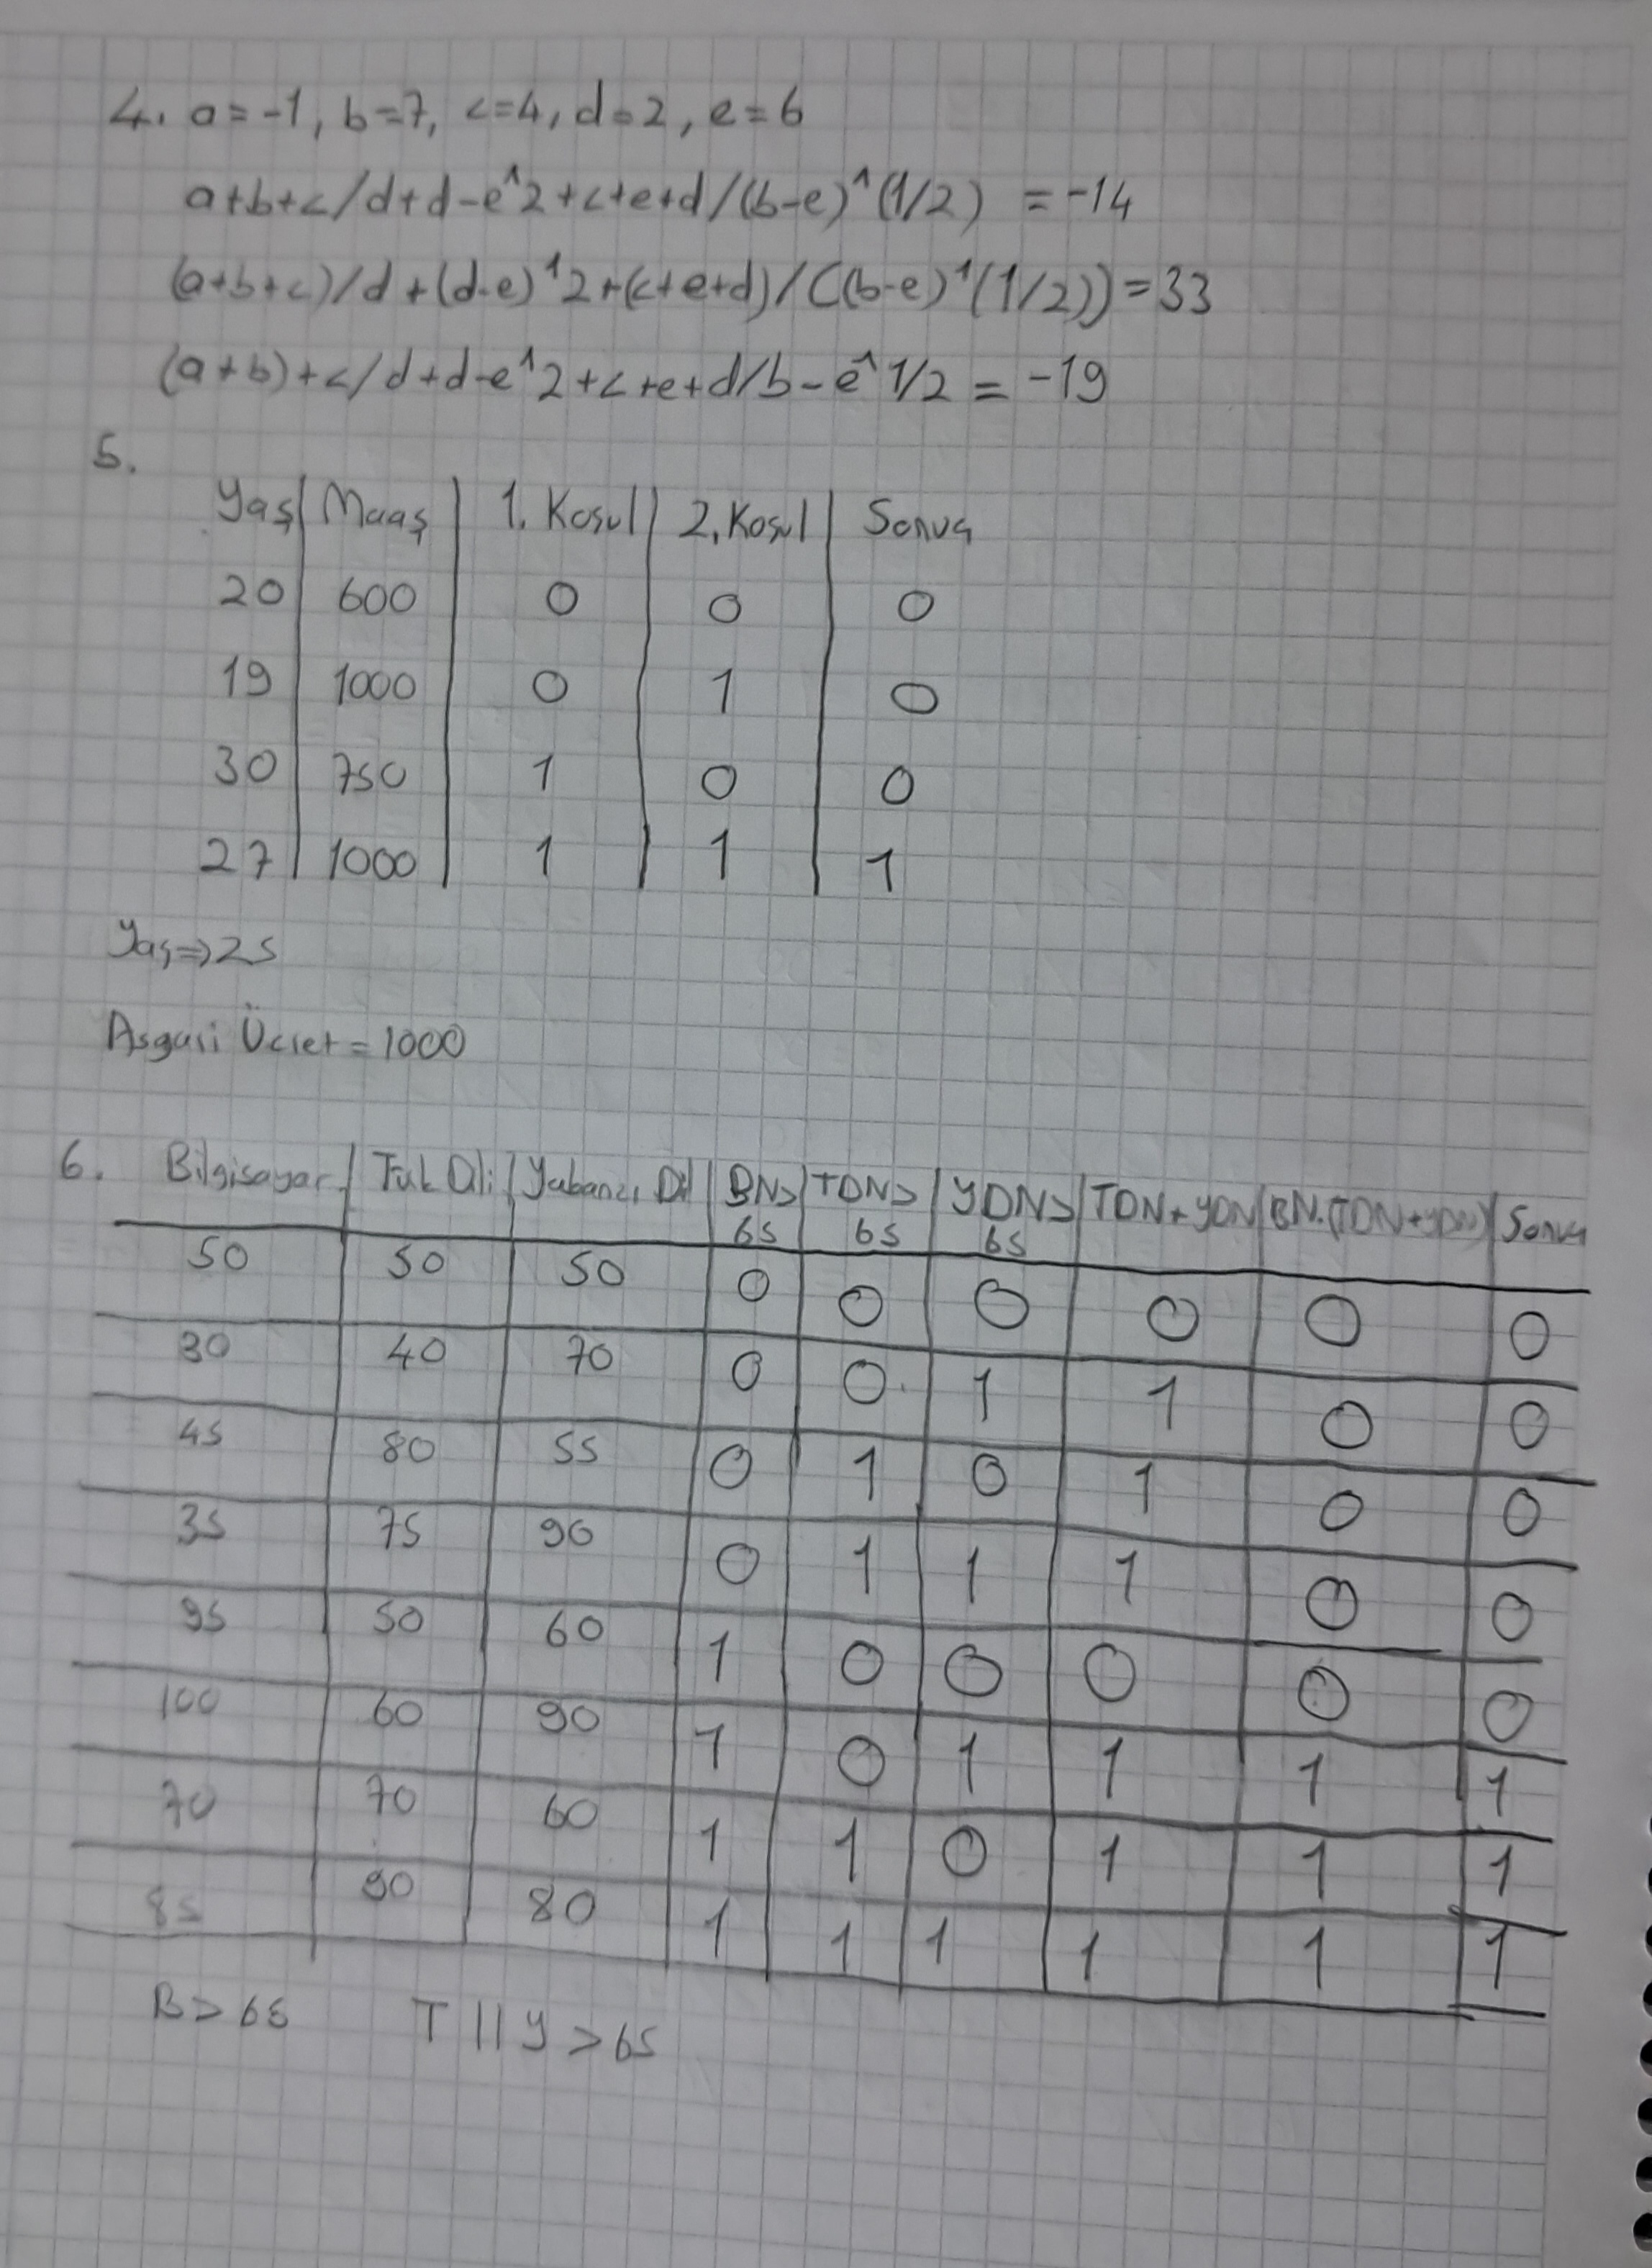 4. a=-1, b=7, c=4, d=2, e=6
a+b+c/d+d-e^2+c+e+d/(b-e)^(1/2) = -14
(a+b+c)/d+(d-e)^2+(c+e+d)/((b-e)^(1/2))=33
(a+b)+c/d+d-e^2+c+e+d/b-e^1/2 = -19
5.
Yaş | Maaş | 1. Koşul | 2. Koşul | Sonuç
20 | 600 | 0 | 0 | 0
19 | 1000 | 0 | 1 | 0
30 | 750 | 1 | 0 | 0
27 | 1000 | 1 | 1 | 1
Yaş=>25
Asgari Ücret = 1000
6. Bilgisayar | Türk Dili | Yabancı Dil | BN> 65 | TDN> 65 | YDN> 65 | TDN+YDN | BN.(TDN+YDN) | Sonuç
50 | 50 | 50 | 0 | 0 | 0 | 0 | 0 | 0
30 | 40 | 70 | 0 | 0 | 1 | 1 | 0 | 0
45 | 80 | 55 | 0 | 1 | 0 | 1 | 0 | 0
35 | 75 | 90 | 0 | 1 | 1 | 1 | 0 | 0
95 | 50 | 60 | 1 | 0 | 0 | 0 | 0 | 0
100 | 60 | 90 | 1 | 0 | 1 | 1 | 1 | 1
70 | 70 | 60 | 1 | 1 | 0 | 1 | 1 | 1
85 | 90 | 80 | 1 | 1 | 1 | 1 | 1 | 1
B > 65 T || Y > 65